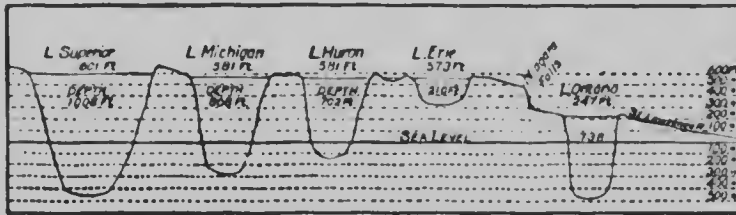 L. Superior
601 Ft
DEPTH
1008 Ft
L. Michigan
581 Ft
DEPTH
Ft
L. Huron
581 Ft
DEPTH
702 Ft
L. Erie
573 Ft
210 Ft
Niagara
Falls
L. Ontario
247 Ft
738
St Lawrence
SEA LEVEL
600 Ft
500
400
300
200
100
100
200
300
400
500